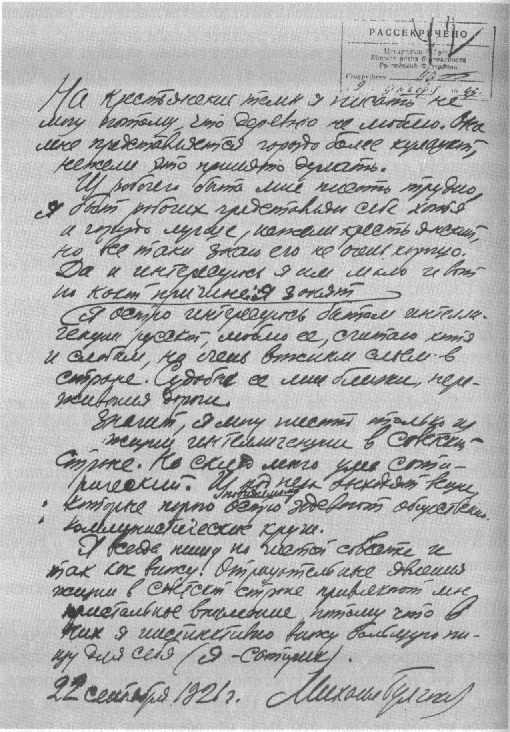 РАССЕКРЕЧЕНО
На крестьянские темы я писать не
могу потому, что деревню не люблю. Она
мне представляется гораздо более кулацкой,
нежели это принято думать.
Из рабочего быта мне писать трудно,
Я быт рабочих представляю себе хотя
и гораздо лучше, нежели крестьянский,
но все таки знаю его не очень хорошо.
Да и интересуюсь я им мало и вот
по какой причине: я занят
Я остро интересуюсь бытом интелли-
генции русской, люблю ее, считаю хотя
и слабым, но очень важным слоем в
стране. Судьбы ее мне близки, пере-
живания дороги.
Значит, я могу писать только из
жизни интеллигенции в советской
стране. Но склад моего ума сати-
рический. Из под пера выходят вещи,
которые порою повидимому остро задевают общественно
коммунистические круги.
Я всегда пишу по чистой совести и
так как вижу! Отрицательные явления
жизни в советской стране привлекают мое
пристальное внимание потому что в
них я инстинктивно вижу большую пи-
щу для себя (Я - сатирик).
22 сентября 1926 г. Михаил Булгаков